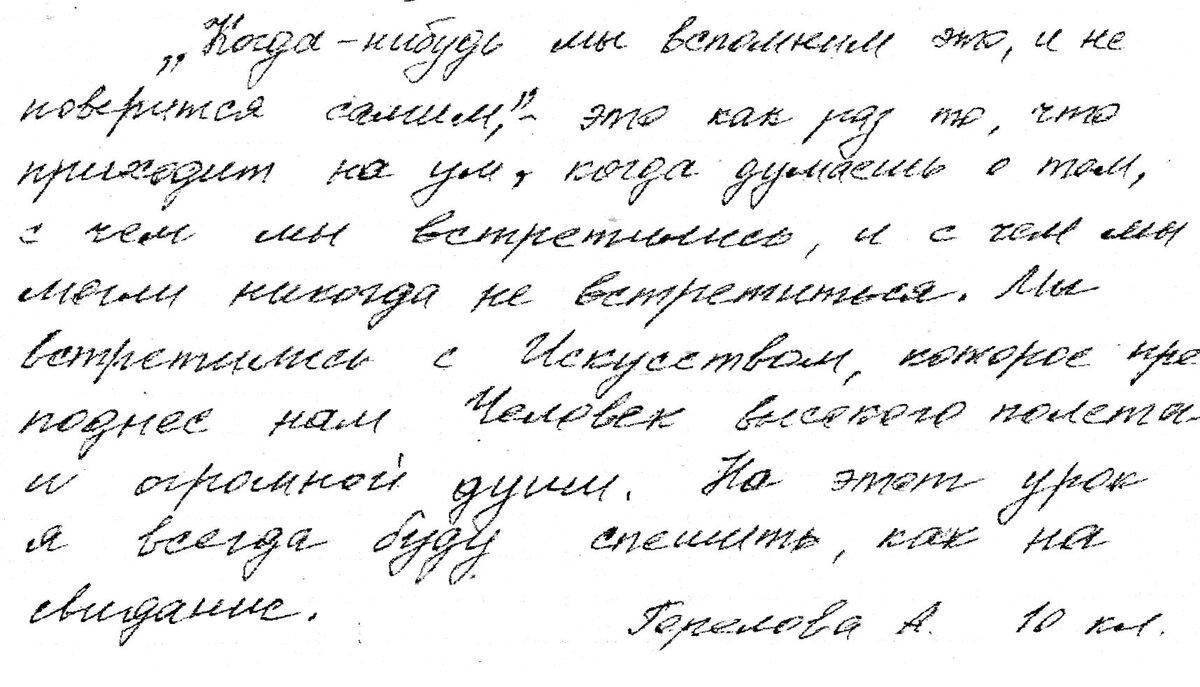 „Когда-нибудь мы вспомним это, и не
поверится самим,"- это как раз то, что
приходит на ум, когда думаешь о том,
с чем мы встретились, и с чем мы
могли никогда не встретиться. Мы
встретились с Искусством, которое пре
поднес нам Человек высокого полета
и огромной души. На этот урок
я всегда буду спешить, как на
свидание.
Горелова А. 10 кл.